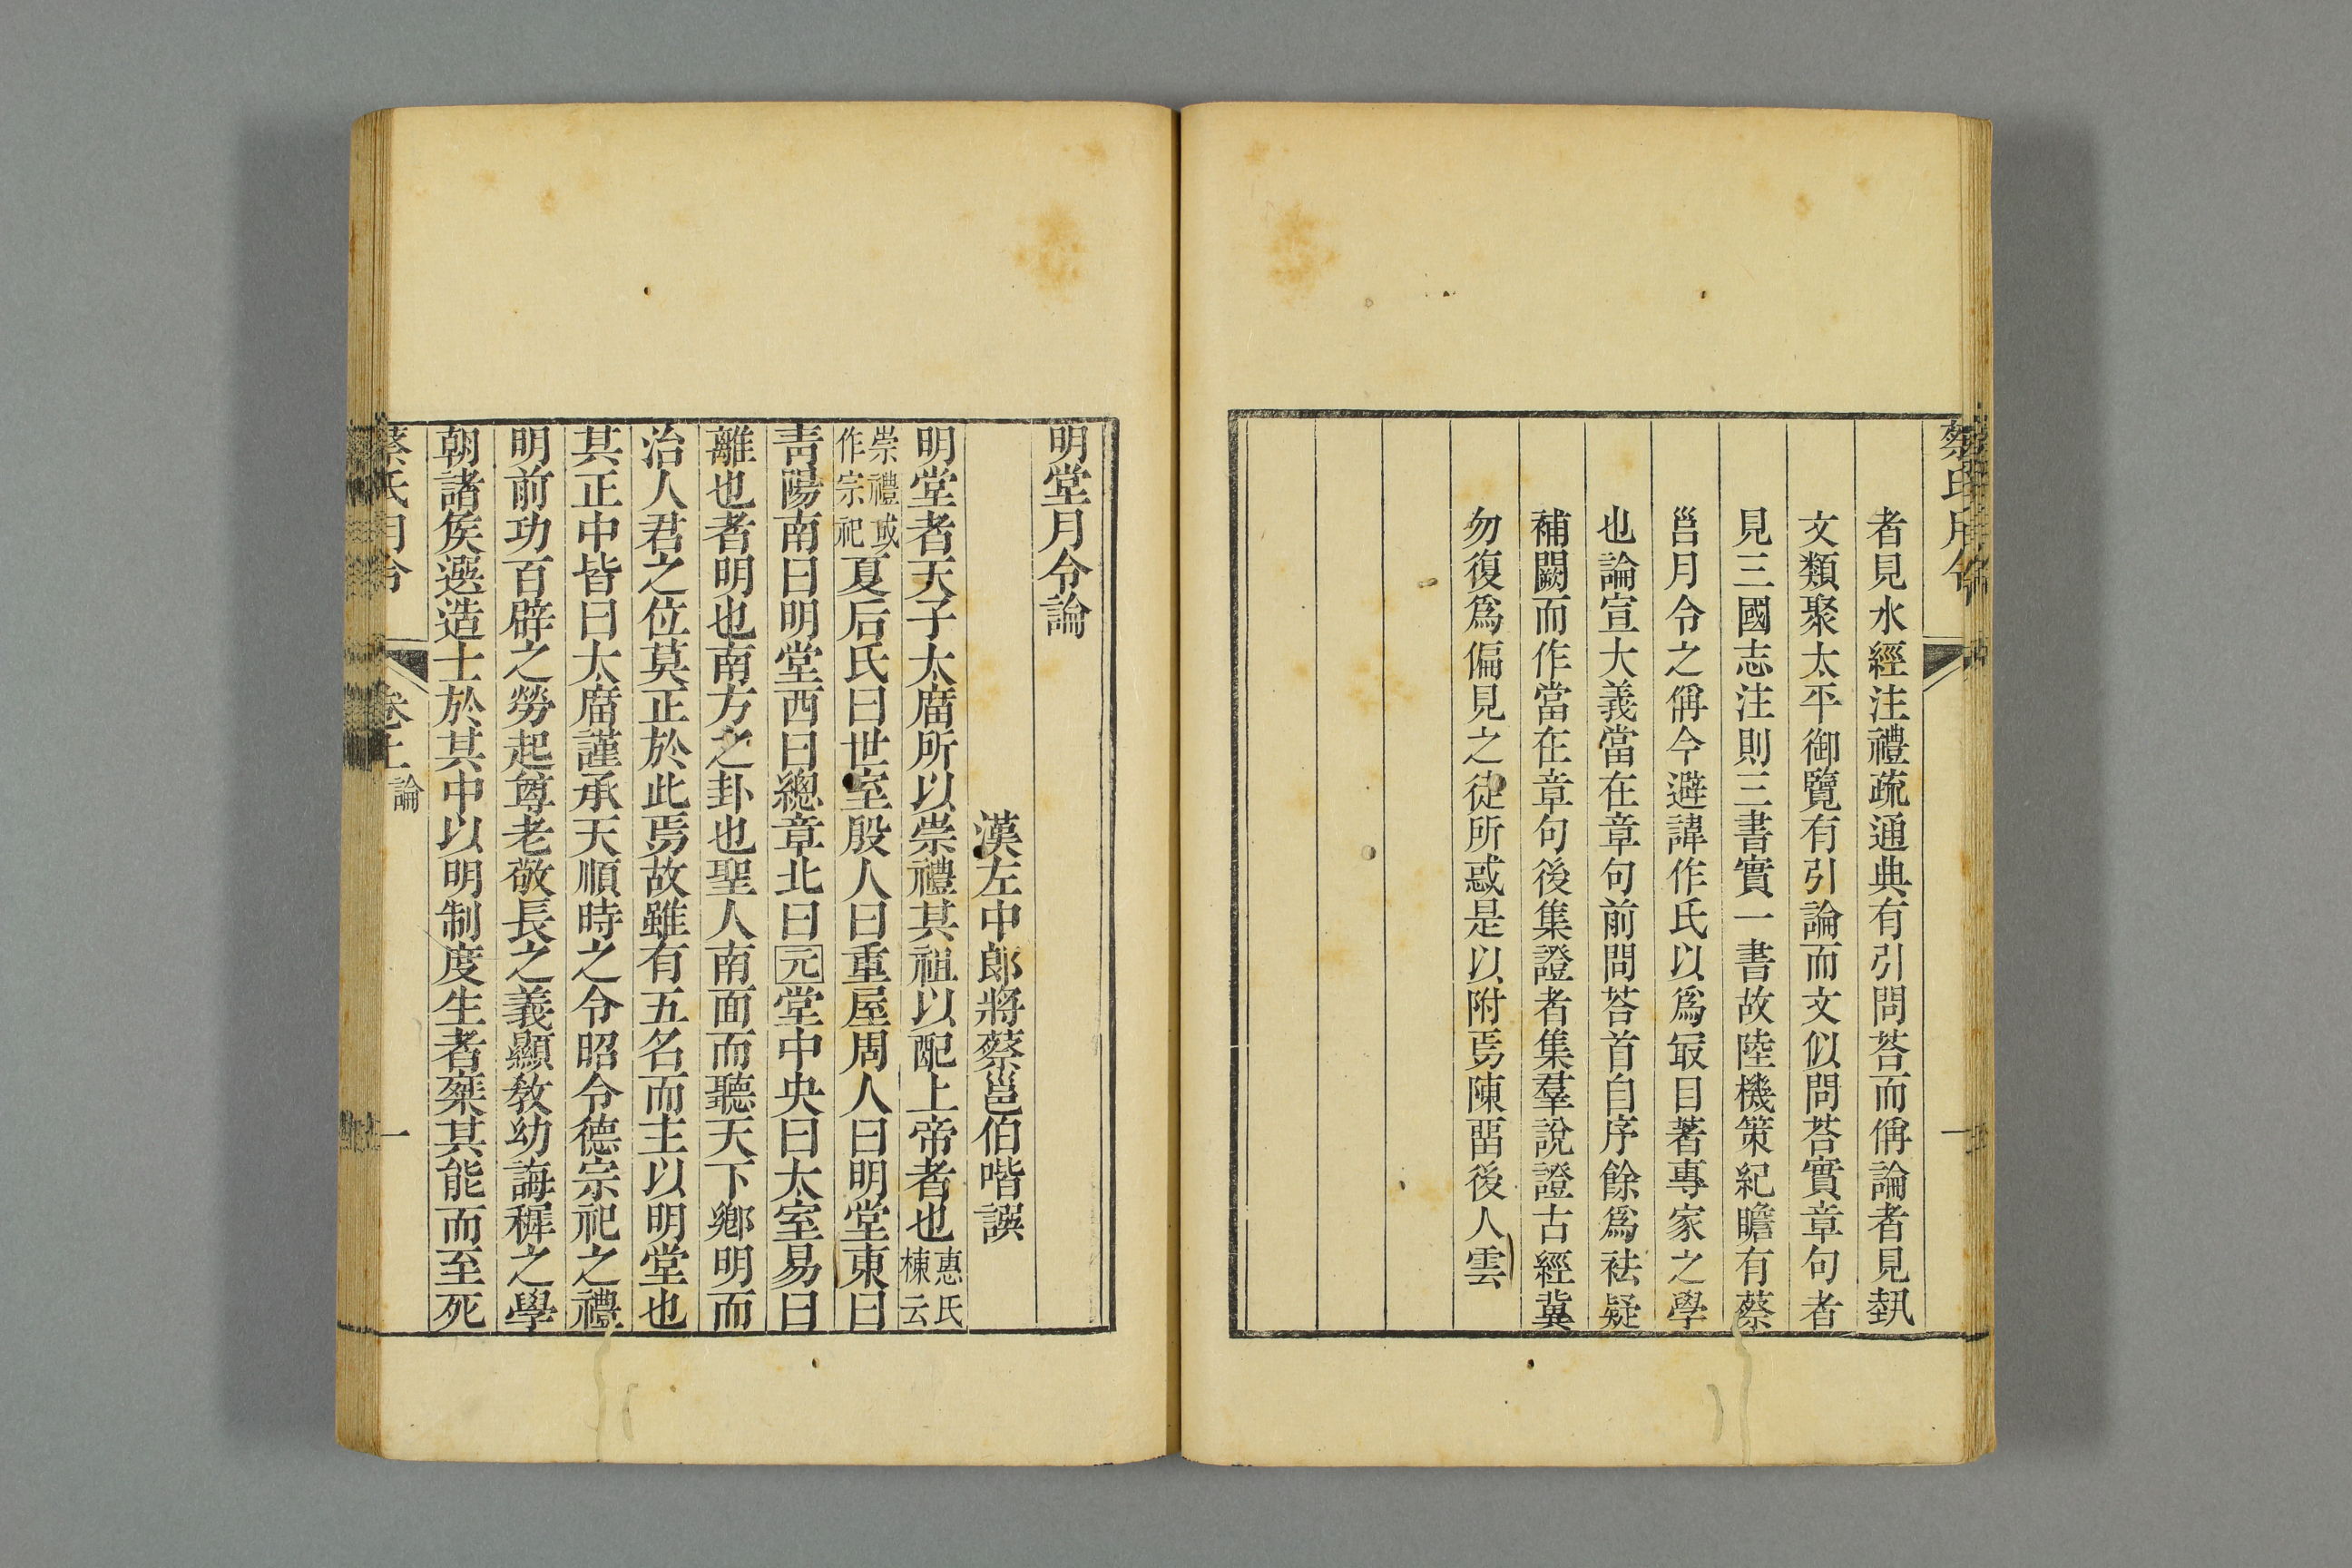 蔡氏月令
一
者見水經注禮疏通典有引問荅而偁論者見埶
文類聚太平御覽有引論而文似問荅實章句者
見三國志注則三書實一書故陸機策紀瞻有蔡
邕月令之偁今避諱作氏以爲冣目著專家之學
也論宣大義當在章句前問荅首自序餘爲袪疑
補闕而作當在章句後集證者集羣說證古經冀
勿復爲偏見之徒所惑是以附焉陳畱後人雲
明堂月令論
漢左中郎將蔡邕伯喈譔
明堂者天子太廟所以崇禮其祖以配上帝者也惠氏棟云
崇禮或作宗祀夏后氏曰世室殷人曰重屋周人曰明堂東曰
靑陽南曰明堂西曰總章北曰元堂中央曰太室易曰
離也者明也南方之卦也聖人南面而聽天下鄉明而
治人君之位莫正於此焉故雖有五名而主以明堂也
其正中皆曰太廟謹承天順時之令昭令德宗祀之禮
明前功百辟之勞起尊老敬長之義顯敎幼誨穉之學
朝諸侯選造士於其中以明制度生者椉其能而至死
蔡氏月令
卷上論
一